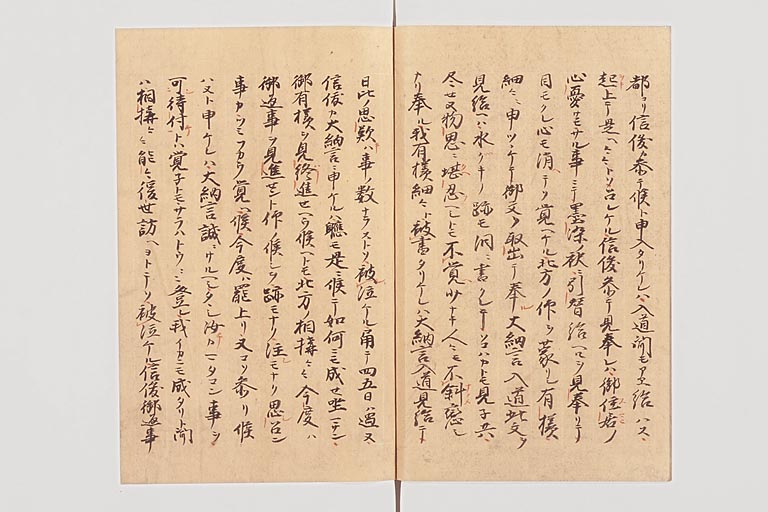 都ヨリ信俊参テ候ト申入タリケレハ入道聞モアエ給ハス
起上テ是ヘ々々トソ召レケル信俊参テ見奉レハ御住居ノ
心憂サモサル事ニテ墨染ノ袂ニ引替給ヘルヲ見奉リテ
目モクレ心モ消テソ覚ヘケル北方ノ仰ヲ蒙レシ有様
細ニ申ツヽケテ御文ヲ取出テ奉ル大納言入道此文ヲ
見給ヘハ水クキノ跡モ涙ニ書クレテソコハカトモ見子共ハ
尽セヌ物思ニ堪忍ヘシトモ不覚ナト人々モ不斜恋シ
ナリ奉ル我有様細々ト被書タリケレハ大納言入道見給テ
日比ノ思歎ハ事ノ数ナラストソ被泣ケル角テ四五日ハ過ヌ
信俊大納言ニ申ケルハ軈モ是ニ候テ如何ニモ成セ坐サン
御有様ヲ見終進セハヤト候ヘトモ北方ノ相構々々今度ハ
御返事ヲ見進セント仰候シヲ跡モナク注モナク思召ン
事カツミフカク覚ヘ候今度ハ罷上リ又コソ参リ候
ハメト申ケレハ大納言誠ニサルヘシタヽシ汝カコン事ヲ
可待付トハ覚子トモサラハトウ々々登レ我イカニモ成タリト聞
ハ相構々々能々後世訪ヘヨトテソ被泣ケル信俊御返事